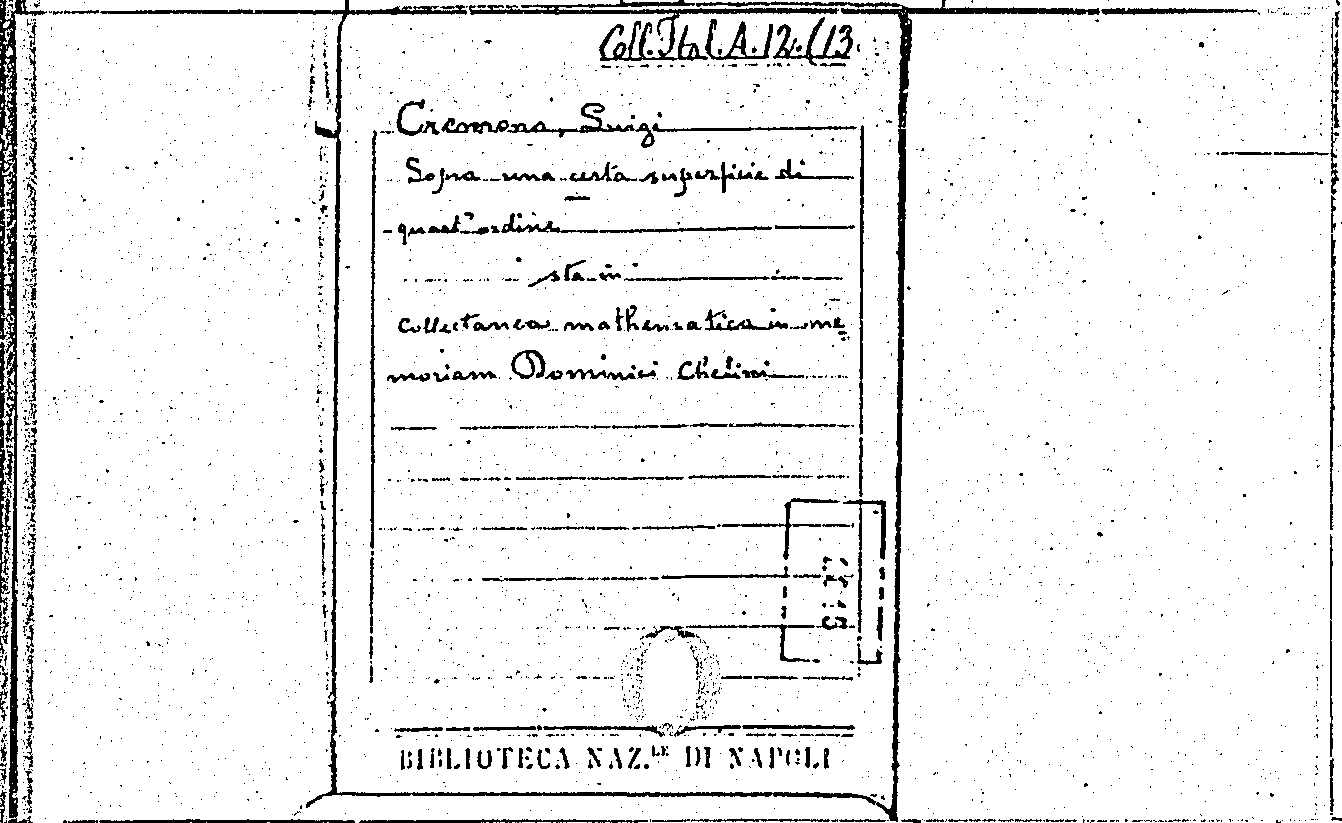 Coll. Ital. A. 12. (13
Cremona, Luigi
Sopra una certa superficie di
quart° ordine
sta in
Collectanea mathematica in me
moriam Dominici Chelini
BIBLIOTECA NAZ.LE DI NAPOLI